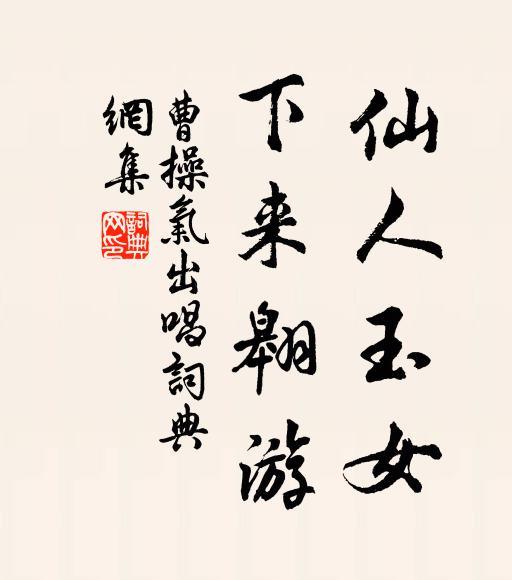 仙人玉女
下来翱游
曹操氣出唱詞典
網集
詞典網印